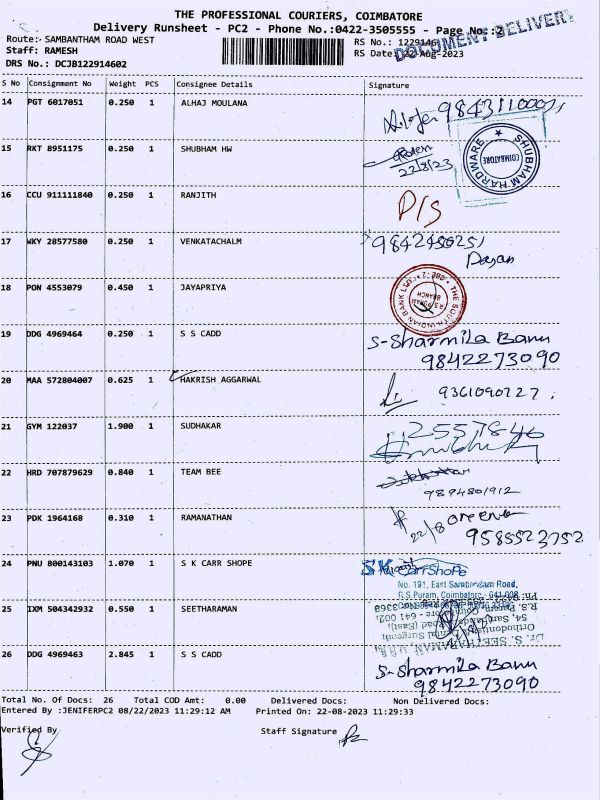 THE PROFESSIONAL COURIERS, COIMBATORE
Delivery Runsheet - PC2 - Phone No.:0422-3505555 - Page No.:2
DOCUMENT DELIVERY
Route:- SAMBANTHAM ROAD WEST
RS No.: 1229146
Staff: RAMESH
RS Date: 22-Aug-2023
DRS No.: DCJB122914602
S No Consignment No Weight PCS Consignee Details Signature
14 PGT 6017051 0.250 1 ALHAJ MOULANA
15 RKT 8951175 0.250 1 SHUBHAM HW 22/8/23
SHUBHAM HARDWARE COIMBATORE
16 CCU 911111840 0.250 1 RANJITH P/S
17 WKY 28577580 0.250 1 VENKATACHALM
18 PON 4553079 0.450 1 JAYAPRIYA
THE SOUTH INDIAN BANK LTD. R.S. PURAM BRANCH
19 DDG 4969464 0.250 1 S S CADD S-Sharmila Banu
9842273090
20 MAA 572804007 0.625 1 HAKRISH AGGARWAL 9361090227
21 GYM 122037 1.900 1 SUDHAKAR 2557846
22 HRD 707879629 0.840 1 TEAM BEE
9894801912
23 PDK 1964168 0.310 1 RAMANATHAN 22/8
9585523752
24 PNU 800143103 1.070 1 S K CARR SHOPE SK Carr Shope
No. 191, East Sambandam Road,
R.S.Puram, Coimbatore - 641 002.
25 IXM 504342932 0.550 1 SEETHARAMAN
Dr. S. SEETHARAMAN
26 DDG 4969463 2.845 1 S S CADD S-Sharmila Banu
9842273090
Total No. Of Docs: 26 Total COD Amt: 0.00 Delivered Docs: Non Delivered Docs:
Entered By :JENIFERPC2 08/22/2023 11:29:12 AM Printed On: 22-08-2023 11:29:33
Verified By Staff Signature